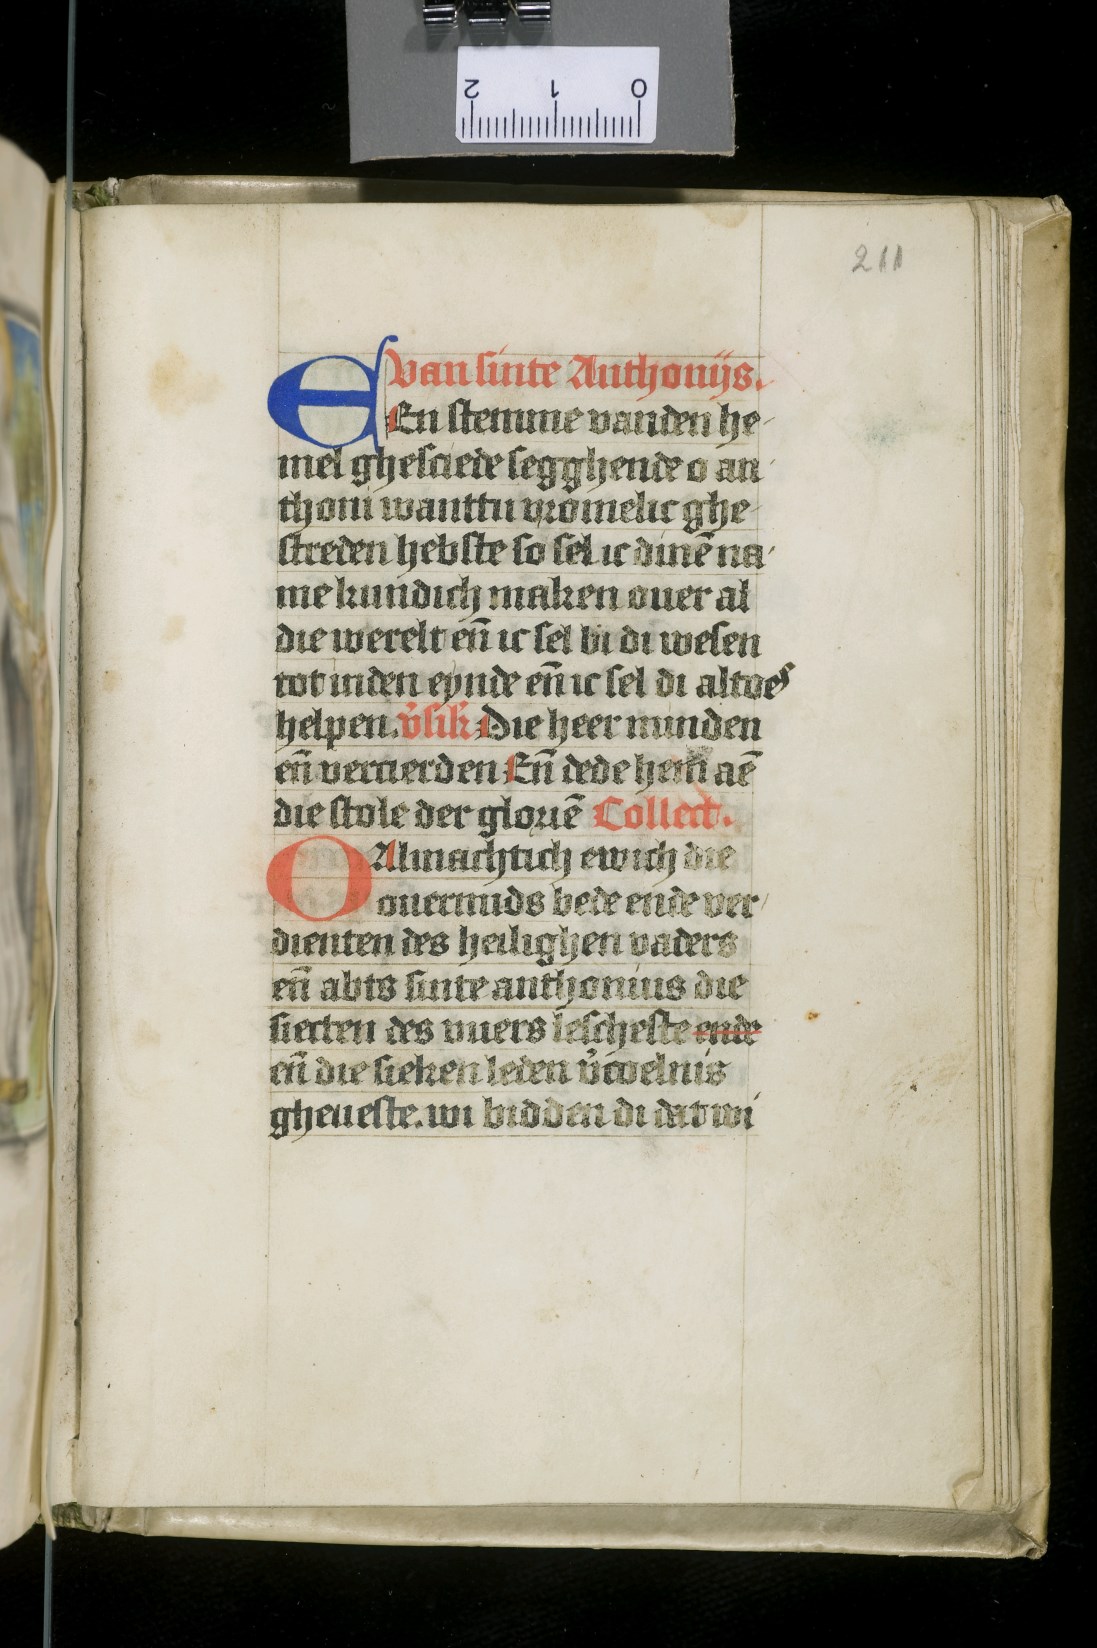 211
Van sinte Anthonijs.
EEn stemme vanden he-
mel ghesciede segghende o an-
thoni wanttu vromelic ghe-
streden hebste so sel ic dinē na-
me kundich maken ouer al
die werelt en̄ ic sel bi di wesen
tot inden eynde en̄ ic sel di altoes
helpen. v̄sik̄. Die heer minden
en̄ vercierden En̄ dede hem aē
die stole der gloriē Collect.
O Almachtich ewich die
ouermids bede ende ver-
dienten des heilighen vaders
en̄ abts sinte anthonius die
siecten des vuers lescheste ende
en̄ die sieken leden v̄coelnis
gheueste. wi bidden di dat wi
2 1 0